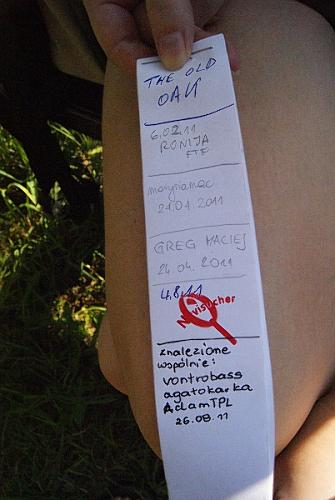 THE OLD
OAK
6.02.11
RONIJA
FTF
marynamac
21.04.2011
GREG MACIEJ
24.04.2011
4.8.11
znalezione
wspólnie:
vontrobass
agatokarka
AdamTPL
26.08.11